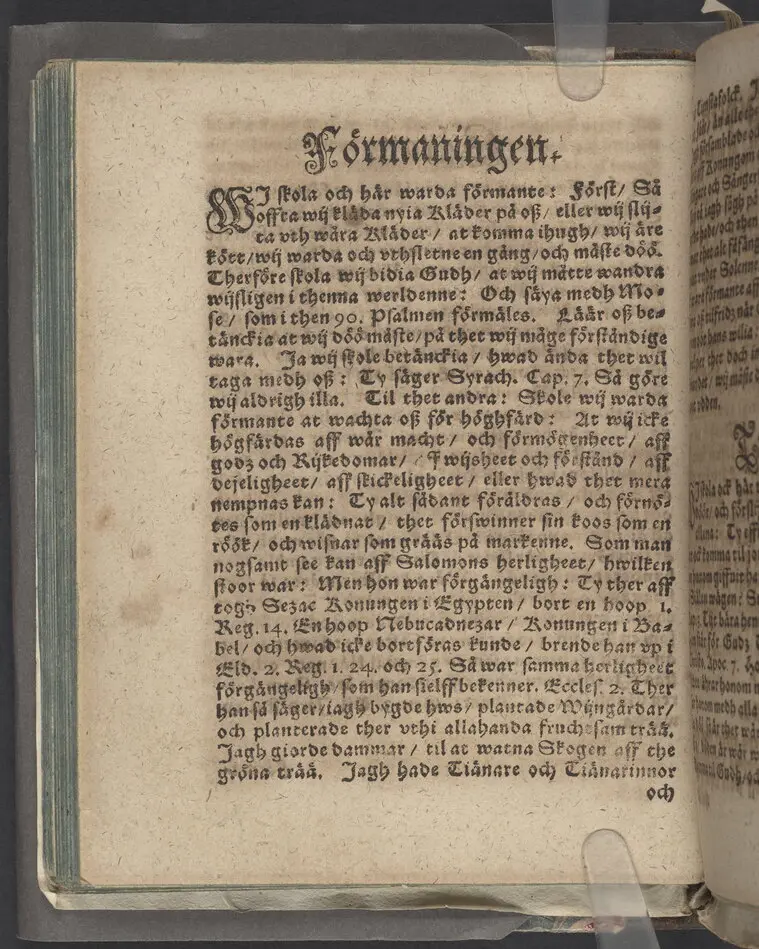 Förmaningen.
WI skola och här warda förmante: Först/ Så
offta wij kläda nyia Kläder på oß/ eller wij slij-
ta vth wåra Kläder/ at komma ihugh/ wij äre
kött/ wij warda och vthsletne en gång/ och måste döö.
Therföre skola wij bidia Gudh/ at wij måtte wandra
wijsligen i thenna werldenne: Och säya medh Mo-
se/ som i then 90. Psalmen förmäles. Läär oß be-
tänckia at wij döö måste/ på thet wij måge förståndige
wara. Ja wij skole betänckia/ hwad ända thet wil
taga medh oß: Ty säger Syrach. Cap. 7. Så göre
wij aldrigh illa. Til thet andra: Skole wij warda
förmante at wachta oß för höghfärd: At wij icke
högfärdas aff wår macht/ och förmögenheet/ aff
godz och Rijkedomar/ wijsheet och förstånd/ aff
dejeligheet/ aff skickeligheet/ eller hwad thet mera
nempnas kan: Ty alt sådant föråldras/ och förnö-
tes som en klädnat/ thet förswinner sin koos som en
röök/ och wisnar som grääs på markenne. Som man
nogsamt see kan aff Salomons herligheet/ hwilken
stoor war: Men hon war förgängeligh: Ty ther aff
togh Sezac Konungen i Egypten/ bort en hoop 1.
Reg. 14. En hoop Nebucadnezar/ Konungen i Ba-
bel/ och hwad icke bortföras kunde/ brende han vp i
Eld. 2. Reg. 1. 24. och 25. Så war samma herligheet
förgängeligh/ som han sielff bekenner. Eccles. 2. Ther
han så säger/ iagh bygde hws/ plantade Wijngårdar/
och planterade ther vthi allahanda fruchtsam trää.
Jagh giorde dammar/ til at watna Skogen aff the
gröna trää. Jagh hade Tiänare och Tiänarinnor
och